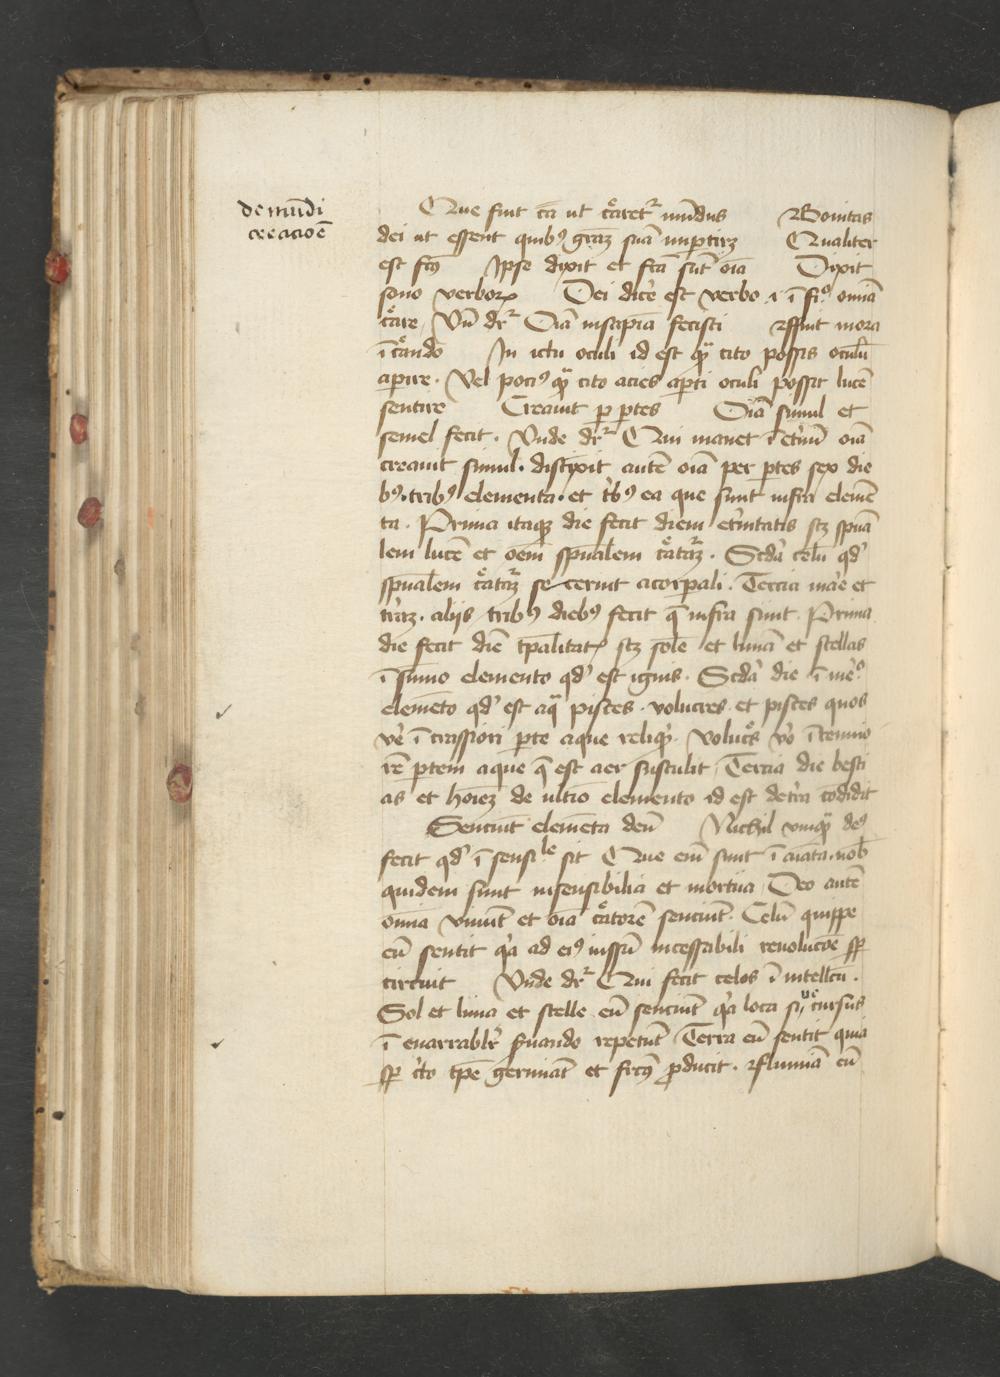 de mūdi
creacioē
Que fuit cā ut c̄aret᷑ mūdus Bonitas
dei ut essent quibꝰ grāz suā imp̱tirꝫ Qualiter
est fc̄s Ipse dixit et fcā sūt oīa Dixit
sono verboꝝ Dei dicẻ est verbo .i. ī fi.º omīa
c̄are. Vn̄ dr᷑ Oīa in sapīa fecisti Affuit mora
ī c̄ando In ictu oculi id est qͣ cito possis oculū
aperire. Vel pociꝰ qͣ cito acies ap̱ti oculi possit lucē
sentire Creauit p̱ p̱tes Oīa simul et
semel fecit. Vnde dr᷑ Qui manet ī et̓nū oīa
creauit simul. distixit autē oīa per p̱tes sex die
bꝰ. tribꝰ elementa. et t͛bꝰ ea que sunt infra elemē
ta. Prima itaqꝫ die fecit diem et̓nitatis scꝫ spūa
lem lucē et oēm spūalem c̄atāꝫ. Scd̓a celū qd̓
spūalem c̄atāꝫ secernit a corp̱ali. Tercia mar̓e et
t̓rāꝫ. alijs tribꝰ diebꝰ fecit q̄ infra sūnt. Prima
die fecit diē tp̄alitatꝭ scꝫ solē et lunā et stellas
ī sūmo elemento qd̓ est ignis. Scd̓a die ī me.º
elemēto qd̓ est aqͣ pisces. volucres. et pisces quos
ve̓ ī crassiori p̱te aque reliqͥ. voluc̓s vo̓ ī tenuio
rē p̱tem aque q̄ est aer sustulit. Tercia die besti
as et hoīeꝫ de ultīo elemento id est de t̓ra cōdidit
Senciūt elemēta deū Nichil vmqͣ deꝰ
fecit qd̓ īsensiˡᵉ sit Que em̄ sunt īaīata. nob̄
quidem sunt insensibilia et mortua. Deo autē
omīa viuūt et oīa c̄atorē senciūt. Celū quippe
eū sentit qͥa ad eiꝰ iussū incessabili reuolucōe sp̱
circuit Vnde dr᷑ Qui fecit celos ī intellcū.
Sol et luna et stelle eū senciūt qͥa loca sui cursus
ī enarrabilr̓ seruando repetūt Terra eū sentit quia
sp̱ c̓to tp̄e germīat et frc̄ꝰ p̱ducit. Flumīa eū